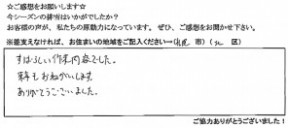 ☆ご感想をお願いします☆
今シーズンの排雪はいかがでしたか?
お客様の声が、私たちの原動力になっています。ぜひ、ご感想をお聞かせ下さい。
※差支えなければ、お住まいの地域をご記入ください→(札幌 市)(北 区)
すばらしい作業内容でした。
来年もおねがいします
ありがとうございました。
ご協力ありがとうございました!